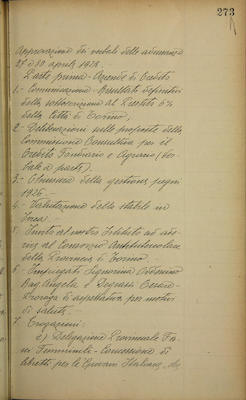 273
Approvazione dei verbali delle adunanze
27 e 30 aprile 1928.
Parte prima - Azienda di Credito
1.- Comunicazione Risultato definitivo
della sottoscrizione al Prestito 6%
della Città di Torino.
2.- Deliberazioni sulle proposte della
Commissione Consultiva per il
Credito Fondiario e Agrario (ver-
bale a parte).
3.- Chiusura della gestione pegni
1926.
4.- Valutazione dello stabile in
Ivrea.
5.- Invito del nostro Istituto ad ade-
rire al Consorzio Antitubercolare
della Provincia di Torino.
6.- Impiegati Signorina
Rag. Angela e Degiassi Cesare -
Proroga di aspettativa per motivi
di salute.
7.- Erogazioni:
a) Delegazione Provinciale Fa-
sci Femminili - Concessione di
libretti per le Giovani Italiane, da